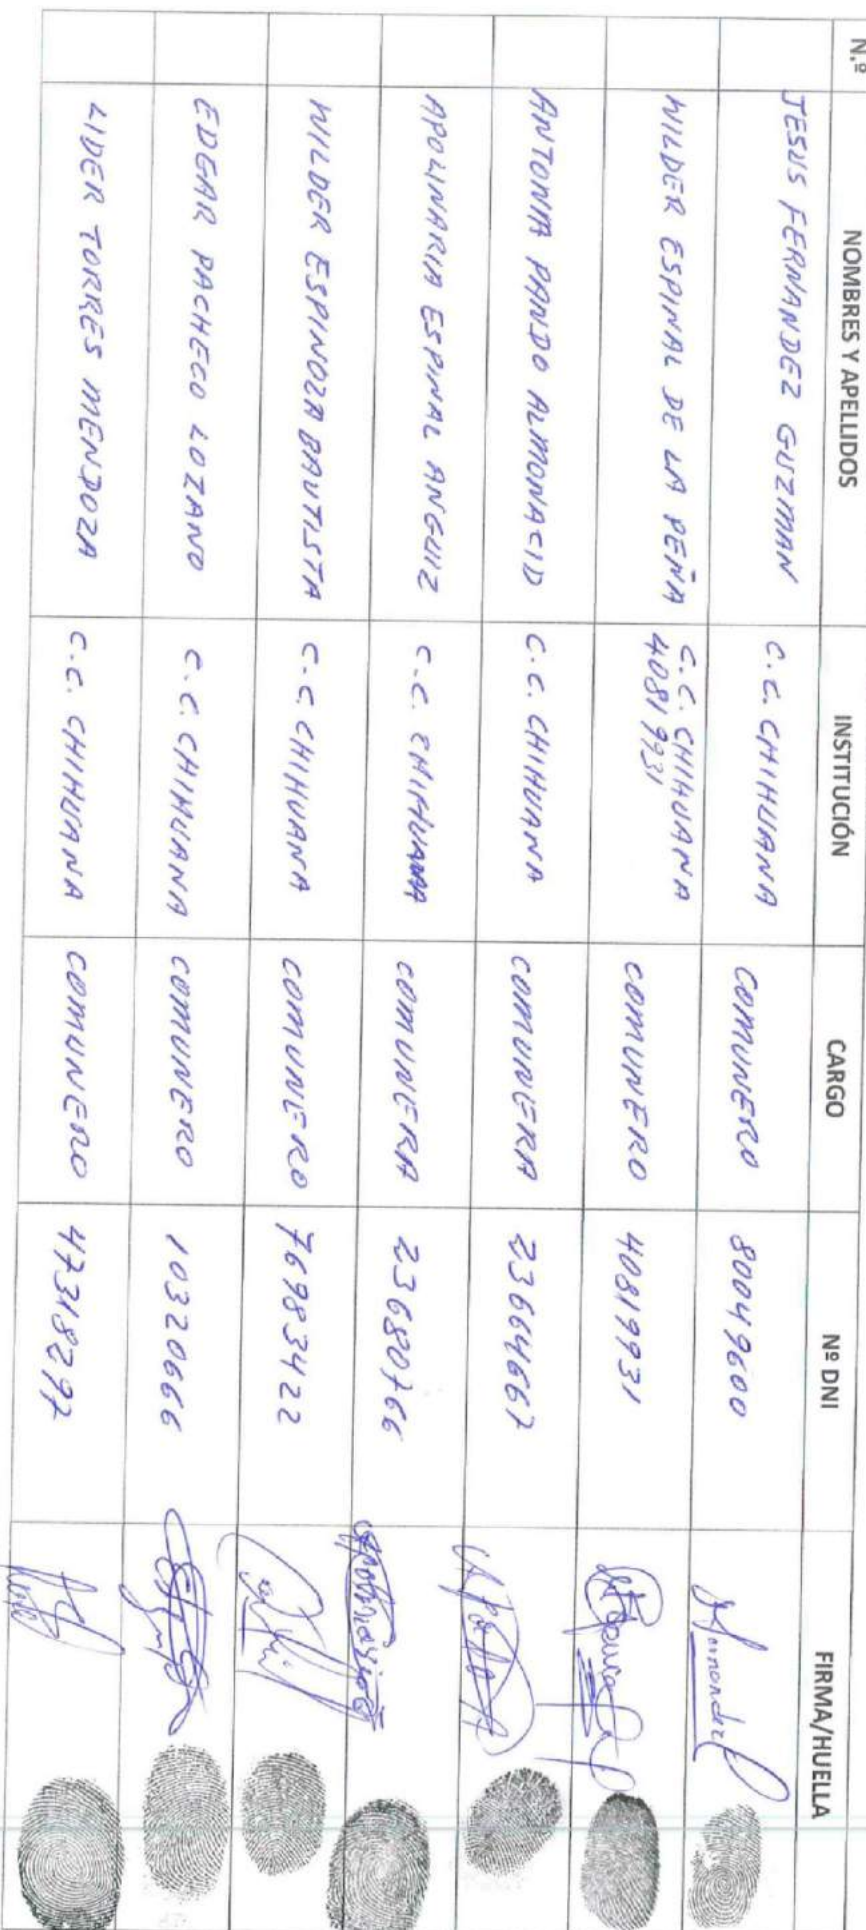 N.º NOMBRES Y APELLIDOS INSTITUCIÓN CARGO Nº DNI FIRMA/HUELLA
JESUS FERNANDEZ GUZMAN C.C. CHIHUANA COMUNERO 80049600
WILDER ESPINAL DE LA PEÑA C.C. CHIHUANA 40819931 COMUNERO 40819931
ANTONIA PANDO ALMONACID C.C. CHIHUANA COMUNERA 23664667
APOLINARIA ESPINAL ANGUIZ C.C. CHIHUANA COMUNERA 23680766
WILDER ESPINOZA BAUTISTA C.C. CHIHUANA COMUNERO 76983422
EDGAR PACHECO LOZANO C.C. CHIHUANA COMUNERO 10320666
LIDER TORRES MENDOZA C.C. CHIHUANA COMUNERO 47318297